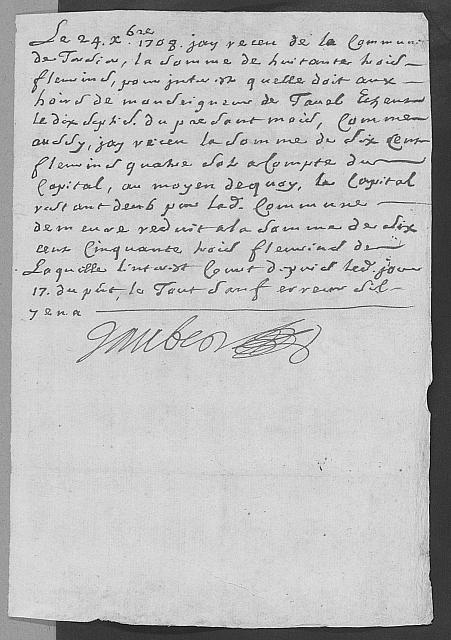 Le 24. x.bre 1708. jay receu de la Commun
de , la somme de huitante trois
fleurins, pour interest quelle doit aux
hoirs de monseigneur de Tavel Echeus
le dix septie. du presant mois, Comme
aussy, jay receu la somme de Six Cent
fleurins quatre sols a Compte du
Capital, au moyen dequoy, le Capital
restant deub par lad. Commune
demeure reduit a la somme de six
cens Cinquante trois fleurins de
Laquelle linterest Court depuis led. jour
17. du pnt, le Tout Sauf erreur sil
y en a